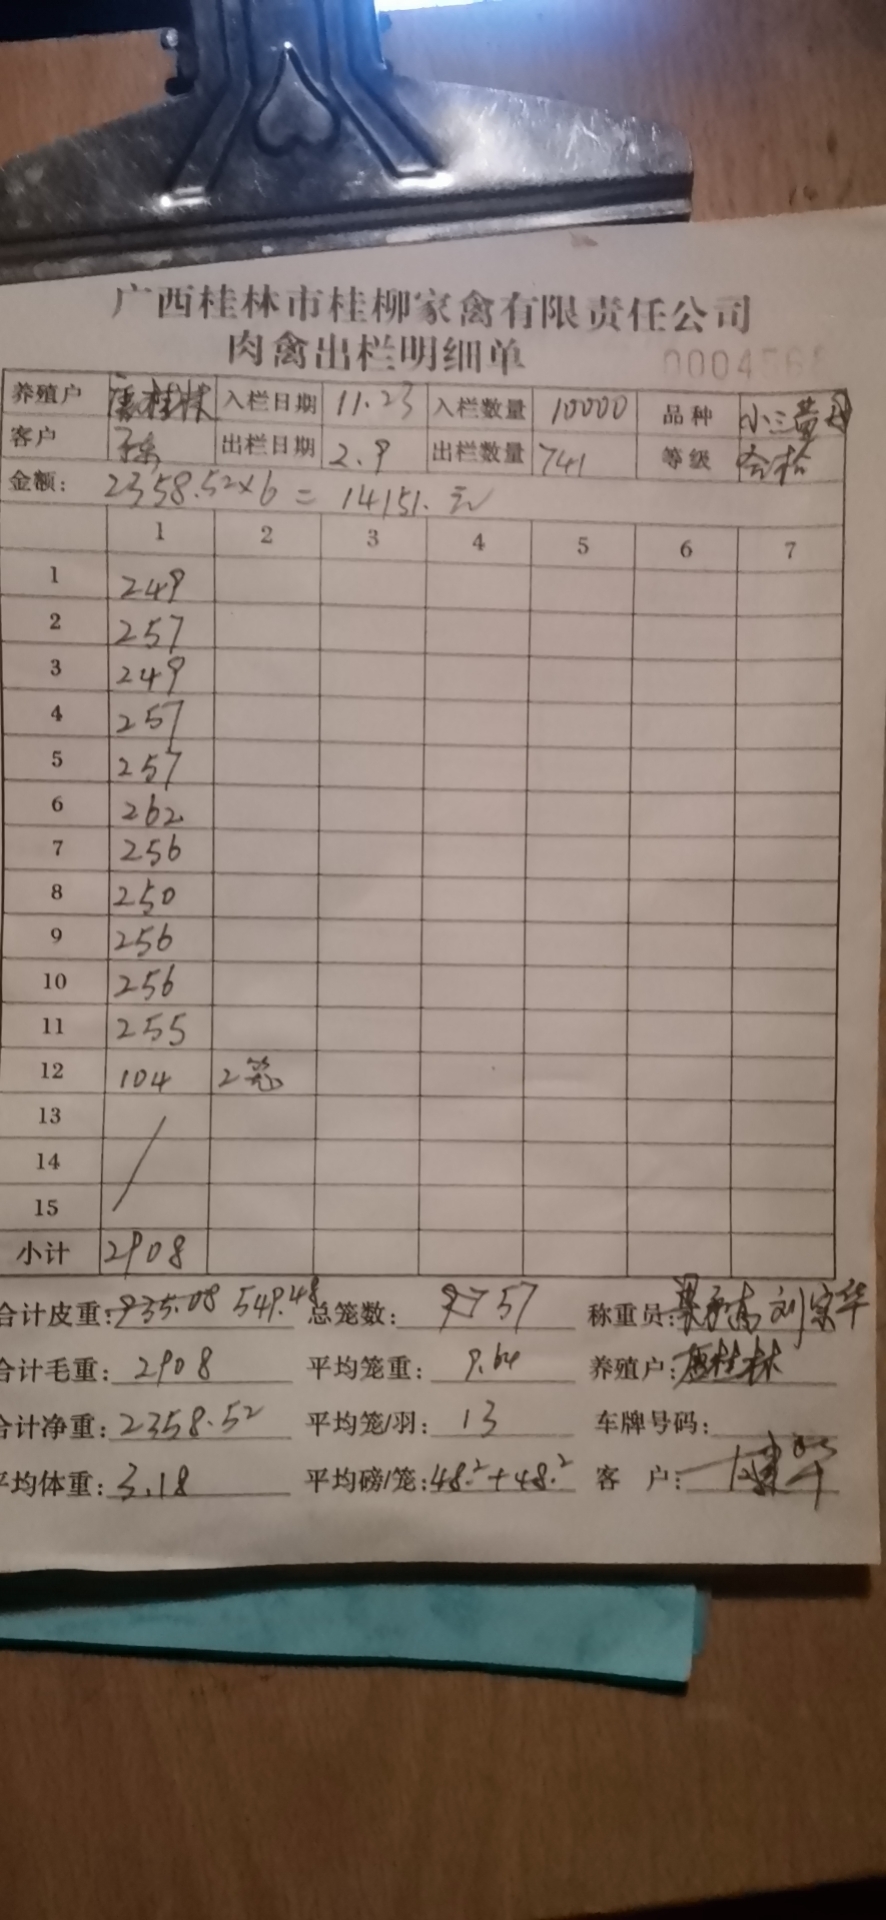 广西桂林市桂柳家禽有限责任公司
肉禽出栏明细单
养殖户 唐桂林 入栏日期 11.23 入栏数量 10000 品种 小三黄
客户 出栏日期 2.9 出栏数量 741 等级 合格
金额: 2358.52×6=14151.元
1 2 3 4 5 6 7
1 249
2 257
3 249
4 257
5 257
6 262
7 256
8 250
9 256
10 256
11 255
12 104 2笼
13
14
15
小计 2908
合计皮重: 935.08 549.48 总笼数: 57 称重员: 刘宗华
合计毛重: 2908 平均笼重: 9.64 养殖户: 唐桂林
合计净重: 2358.52 平均笼/羽: 13 车牌号码:
平均体重: 3.18 平均磅/笼: 48.2+48.2 客户: